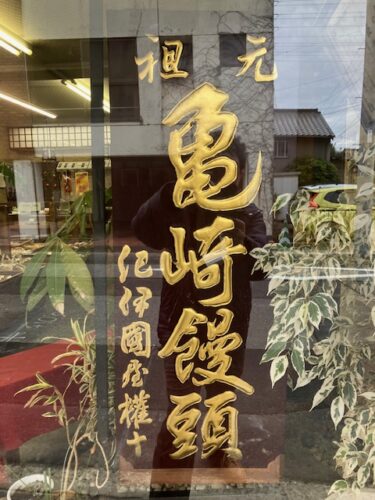 元祖
亀崎饅頭
紀伊國屋權十